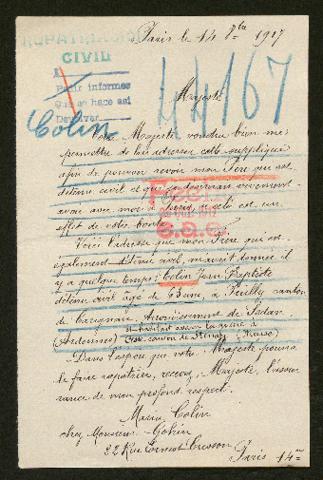 Paris le 14 8bre 1917
REPATRIACION
CIVIL
A
Pedir informes
Que se hace asi
Devolver
44167
Colin
Majesté
Votre Majesté voudra bien me
permettre de lui adresser cette supplique
afin de pouvoir revoir mon Père qui est
détenu civil et que je désirerais vivement
avoir avec moi à Paris, si cela est un
effet de votre bonté.
Voici l'adresse que mon Frère qui est
également détenu civil, m'avait donnée il
y a quelque temps: Colin Jean Baptiste
détenu civil âgé de 63 ans, à Puilly canton
de Carignan, Arrondissement de Sedan
(Ardennes)
il habitait avant la guerre à
canton de Stenay (Meuse)
Dans l'espoir que votre Majesté pourra
le faire rapatrier, recevez, Majesté, l'assu
rance de mon profond respect.
Marie Colin
chez Monsieur Gohin
22 Rue Ernest Cresson
Paris 14me